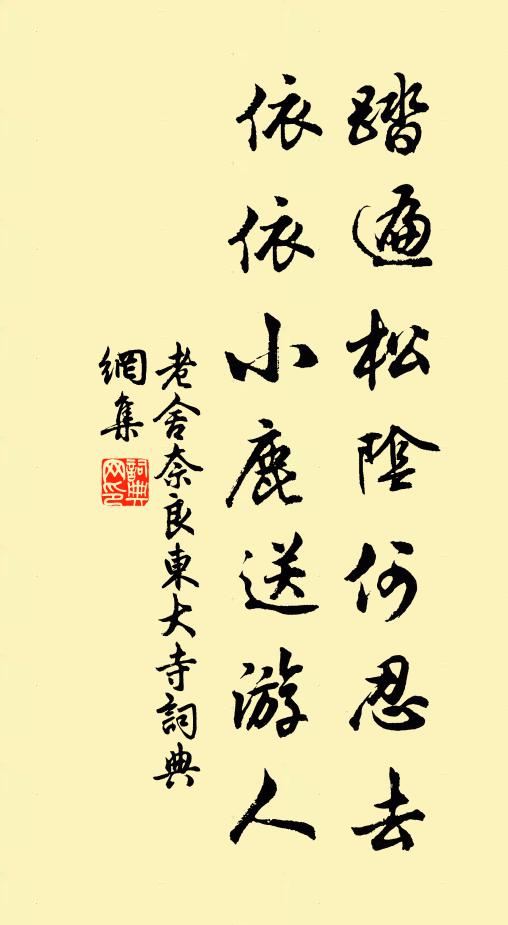 踏遍松陰何忍去
依依小鹿送游人
老舍奈良東大寺詞典
網集
詞典
网印